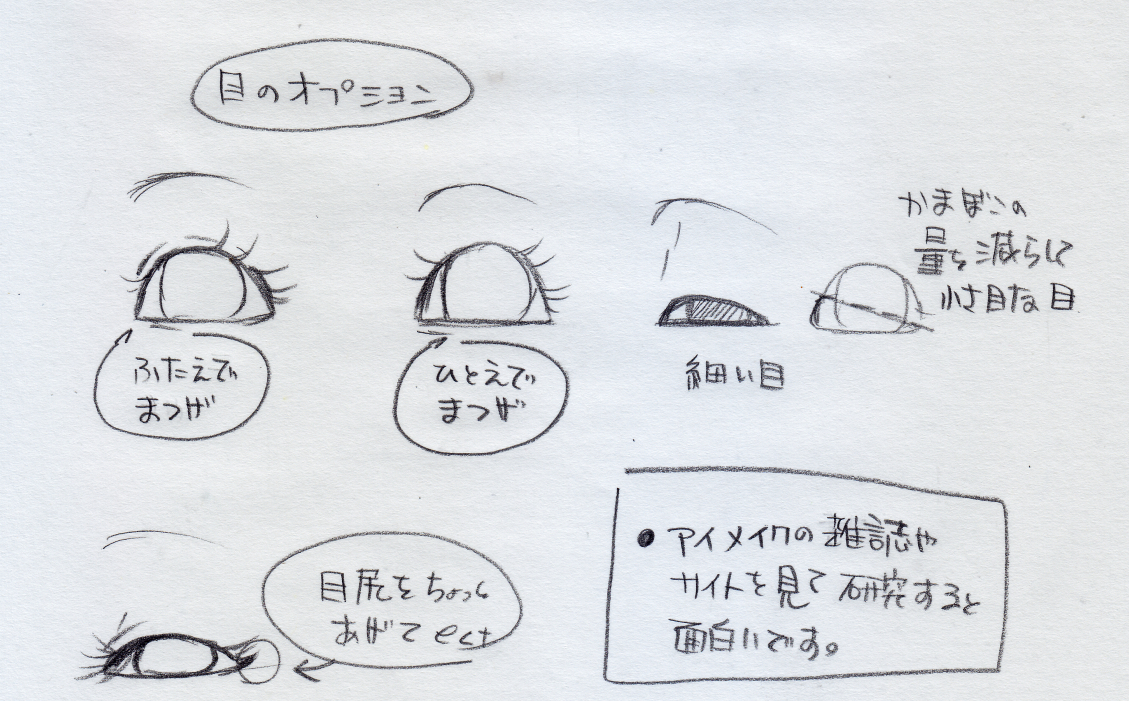 目のオプション
かまぼこの
量を減らして
小さ目な目
ふたえで
まつげ
ひとえで
まつげ
細い目
目尻をちょっと
あげて ect
●アイメイクの雑誌や
サイトを見て研究すると
面白いです。